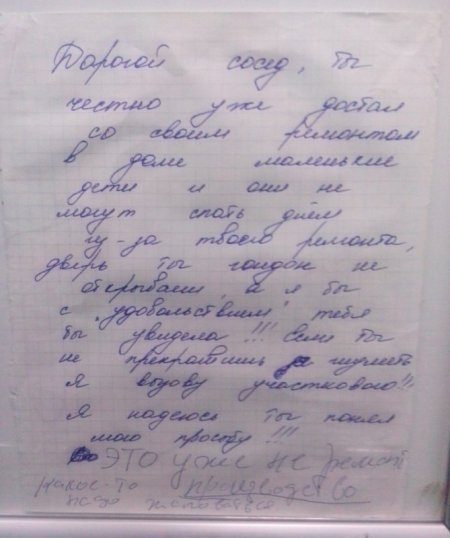 Дорогой сосед, ты
честно уже достал
со своим ремонтом
в доме маленькие
дети и они не
могут спать днём
из-за твоего ремонта,
дверь ты гондон не
открываеш, а я бы
с "удовольствием" тебя
бы увидела!!! Если ты
не прекратишь шуметь
я вызову участкового!!
Я надеюсь ты понял
мою просьбу!!!
ЭТО уже не ремонт
какое-то производство
надо жаловаться